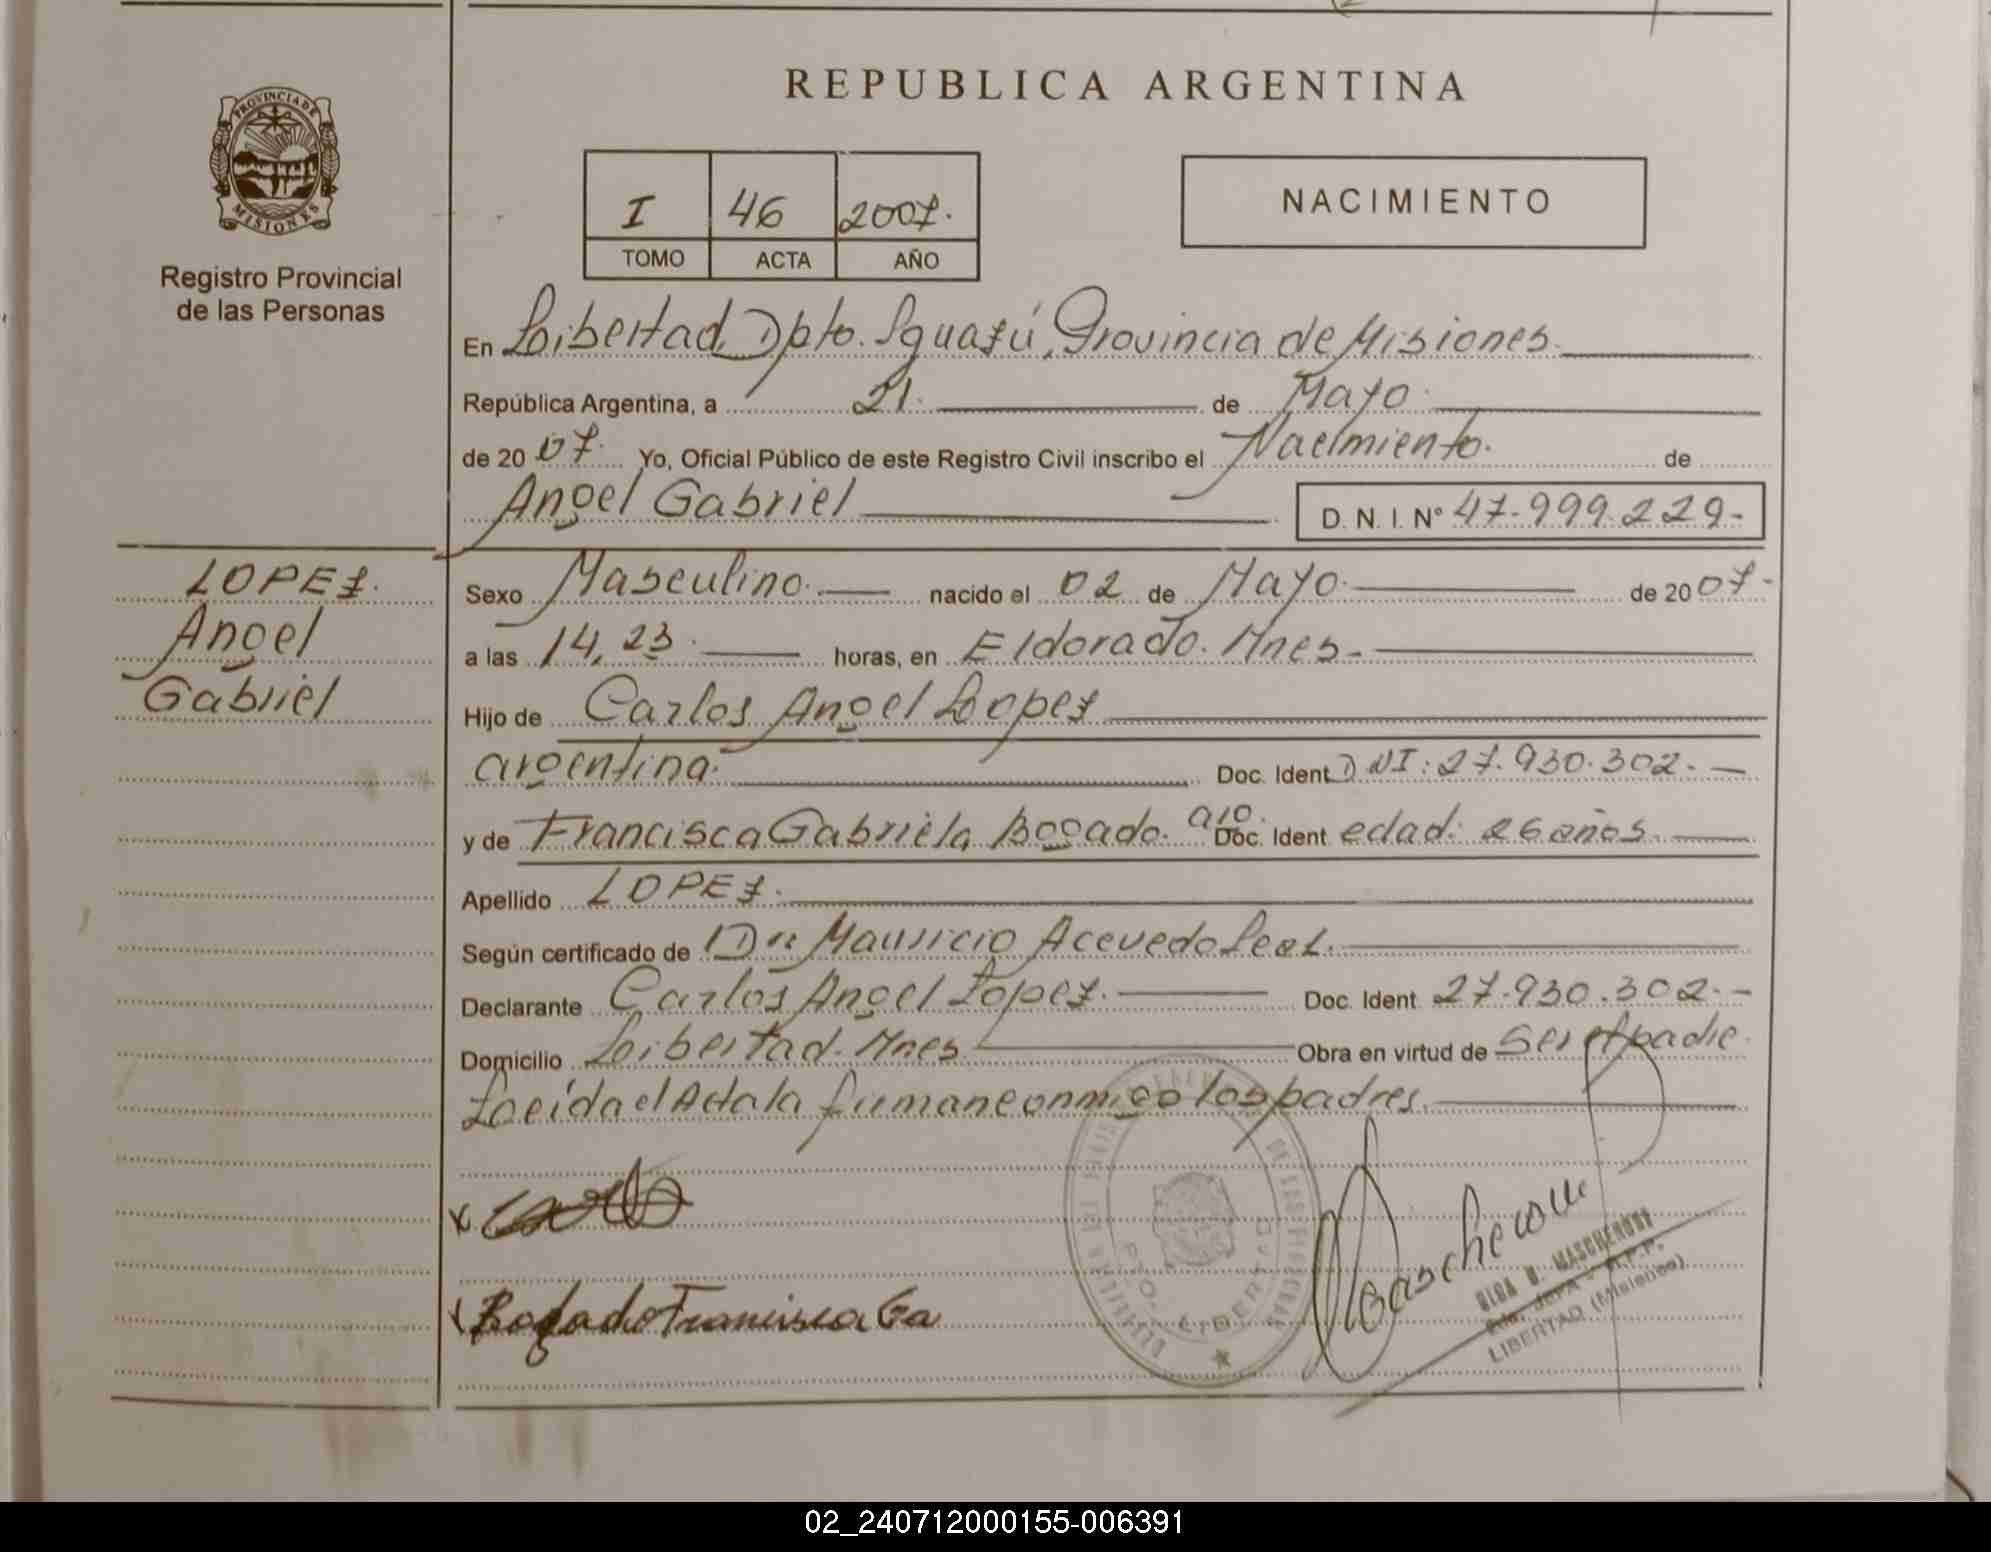 REPUBLICA ARGENTINA
PROVINCIA DE
MISIONES
Registro Provincial
de las Personas
I 46 2007.
TOMO ACTA AÑO
NACIMIENTO
En Libertad, Dpto. Iguazú, Provincia de Misiones.
República Argentina, a 21. de Mayo.
de 20 07. Yo, Oficial Público de este Registro Civil inscribo el Nacimiento. de
Angel Gabriel D. N. I. Nº 47.999.229.-
LOPEZ.
Angel
Gabriel
Sexo Masculino. nacido el 02 de Mayo. de 20 07.-
a las 14,23. horas, en Eldorado. Mnes.-
Hijo de Carlos Angel Lopez
argentina. Doc. Ident. DNI: 27.930.302.-
y de Francisca Gabriela Bogado. Doc. Ident. edad: 26 años.
Apellido LOPEZ.
Según certificado de Dr. Mauricio Acevedo Leal.
Declarante Carlos Angel Lopez. Doc. Ident. 27.930.302.-
Domicilio Libertad. Mnes Obra en virtud de Ser el padre.
Leída el Acta la firman conmigo los padres.
Bogado Francisca Ga
Mascheroni
OLGA B. MASCHERONI
R.P.P.
LIBERTAD (Misiones)
DE LAS PERSONAS
LIBERTAD
02_240712000155-006391